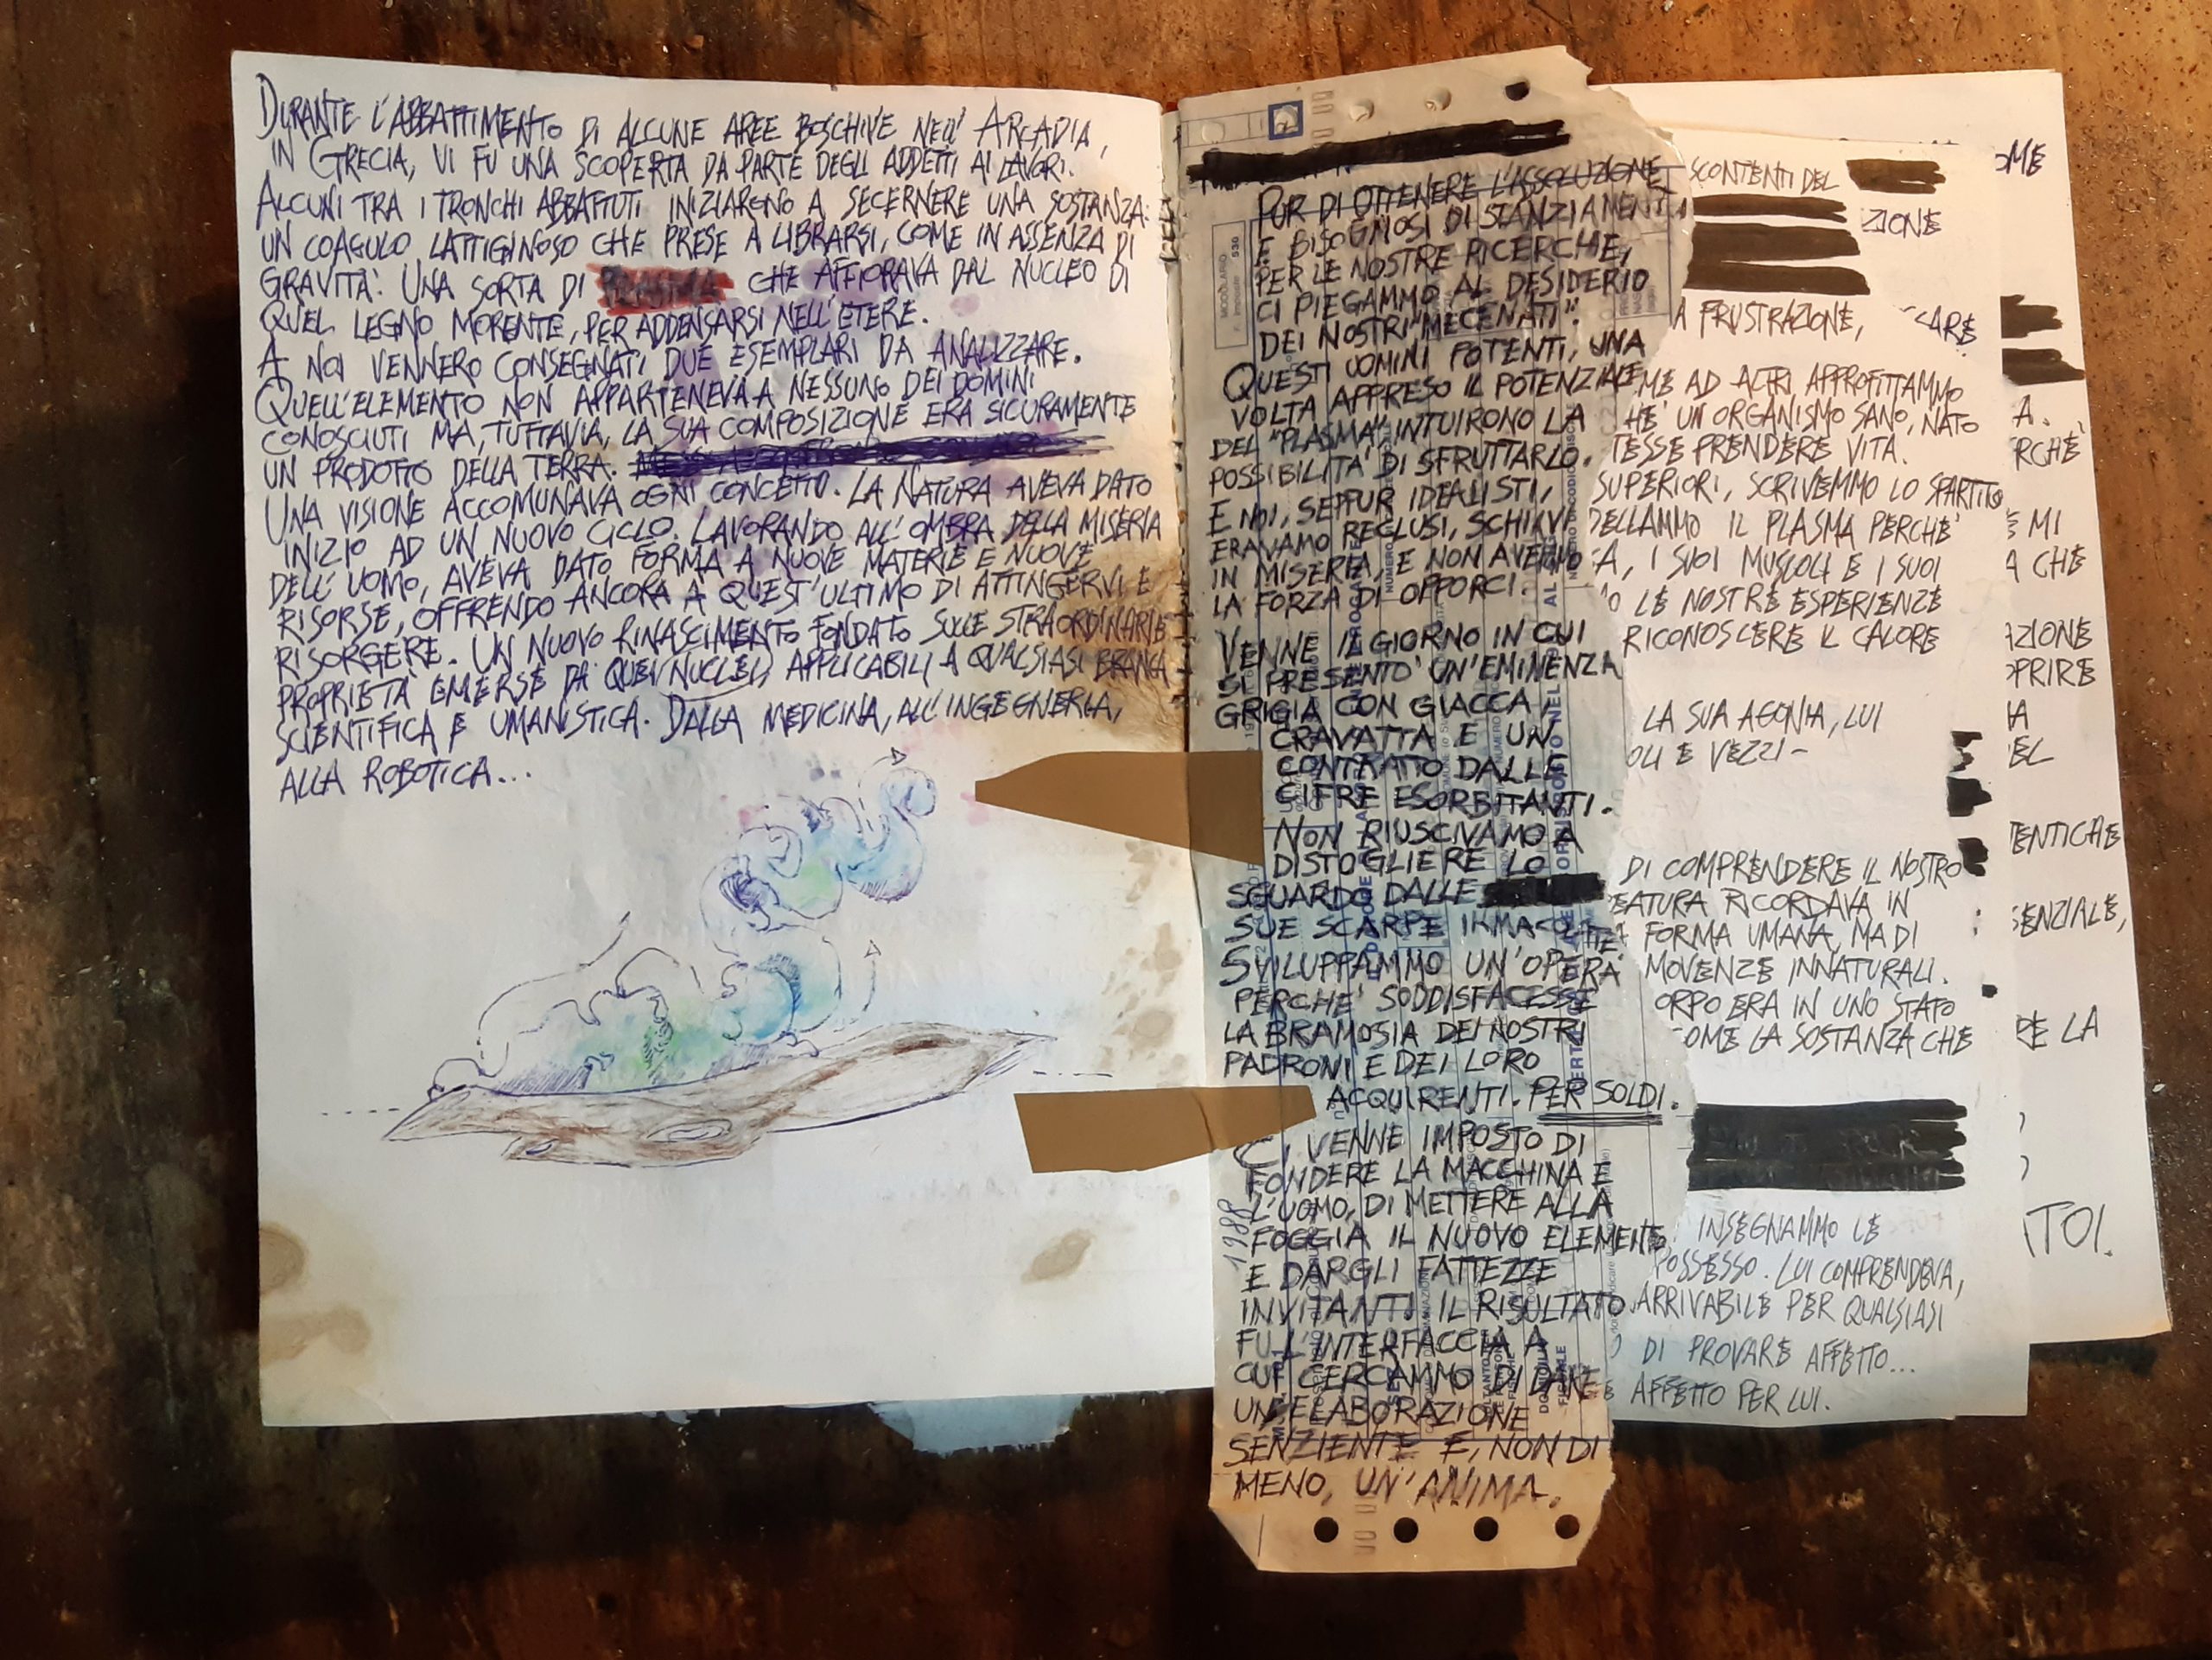 DURANTE L'ABBATTIMENTO DI ALCUNE AREE BOSCHIVE NELL'ARCADIA,
IN GRECIA, VI FU UNA SCOPERTA DA PARTE DEGLI ADDETTI AI LAVORI.
ALCUNI TRA I TRONCHI ABBATTUTI INIZIARONO A SECERNERE UNA SOSTANZA:
UN COAGULO LATTIGINOSO CHE PRESE A LIBRARSI, COME IN ASSENZA DI
GRAVITÀ: UNA SORTA DI PLASMA CHE AFFIORAVA DAL NUCLEO DI
QUEL LEGNO MORENTE, PER ADDENSARSI NELL'ETERE.
A NOI VENNERO CONSEGNATI DUE ESEMPLARI DA ANALIZZARE.
QUELL'ELEMENTO NON APPARTENEVA A NESSUNO DEI DOMINI
CONOSCIUTI MA, TUTTAVIA, LA SUA COMPOSIZIONE ERA SICURAMENTE
UN PRODOTTO DELLA TERRA.
UNA VISIONE ACCOMUNAVA OGNI CONCETTO. LA NATURA AVEVA DATO
INIZIO AD UN NUOVO CICLO. LAVORANDO ALL'OMBRA DELLA MISERIA
DELL'UOMO, AVEVA DATO FORMA A NUOVE MATERIE E NUOVE
RISORSE, OFFRENDO ANCORA A QUEST'ULTIMO DI ATTINGERVI E
RISORGERE. UN NUOVO RINASCIMENTO FONDATO SULLE STRAORDINARIE
PROPRIETÀ EMERSE DA QUEI NUCLEI, APPLICABILI A QUALSIASI BRANCA
SCIENTIFICA E UMANISTICA. DALLA MEDICINA, ALL'INGEGNERIA,
ALLA ROBOTICA...
PUR DI OTTENERE L'ASSOLUZIONE
E BISOGNOSI DI STANZIAMENTI
PER LE NOSTRE RICERCHE,
CI PIEGAMMO AL DESIDERIO
DEI NOSTRI "MECENATI".
QUESTI UOMINI POTENTI, UNA
VOLTA APPRESO IL POTENZIALE
DEL "PLASMA", INTUIRONO LA
POSSIBILITA' DI SFRUTTARLO.
E NOI, SEPPUR IDEALISTI,
ERAVAMO RECLUSI, SCHIAVI
IN MISERIA, E NON AVEMMO
LA FORZA DI OPPORCI.
VENNE IL GIORNO IN CUI
SI PRESENTO' UN'EMINENZA
GRIGIA CON GIACCA,
CRAVATTA E UN
CONTRATTO DALLE
CIFRE ESORBITANTI.
NON RIUSCIVAMO A
DISTOGLIERE LO
SGUARDO DALLE
SUE SCARPE IMMACOLATE
SVILUPPAMMO UN'OPERA
PERCHE' SODDISFACESSE
LA BRAMOSIA DEI NOSTRI
PADRONI E DEI LORO
ACQUIRENTI. PER SOLDI.
CI VENNE IMPOSTO DI
FONDERE LA MACCHINA E
L'UOMO, DI METTERE ALLA
FOGGIA IL NUOVO ELEMENTO
E DARGLI FATTEZZE
INVITANTI IL RISULTATO
FU L'INTERFACCIA A
CUI CERCAMMO DI DARE
UN'ELABORAZIONE
SENZIENTE E, NON DI
MENO, UN'ANIMA.
1988
MODULARIO
530
SCONTENTI DEL
A FRUSTRAZIONE,
ME AD ALTRI APPROFITTAMMO
HE' UN ORGANISMO SANO, NATO
TESSE PRENDERE VITA.
SUPERIORI, SCRIVEMMO LO SPARTITO
DELLAMMO IL PLASMA PERCHE'
A, I SUOI MUSCOLI E I SUOI
O LE NOSTRE ESPERIENZE
RICONOSCERE IL CALORE
LA SUA AGONIA, LUI
OLI E VEZZI-
DI COMPRENDERE IL NOSTRO
EATURA RICORDAVA IN
FORMA UMANA, MA DI
MOVENZE INNATURALI.
ORPO ERA IN UNO STATO
OME LA SOSTANZA CHE
INSEGNAMMO LE
POSSESSO. LUI COMPRENDEVA,
ARRIVABILE PER QUALSIASI
DI PROVARE AFFETTO...
AFFETTO PER LUI.
OME
ZIONE
CARE
A.
RCHÈ
E MI
A CHE
AZIONE
OPRIRE
IA
EL
TENTICHE
SENZIALE,
RE LA
ITOI.